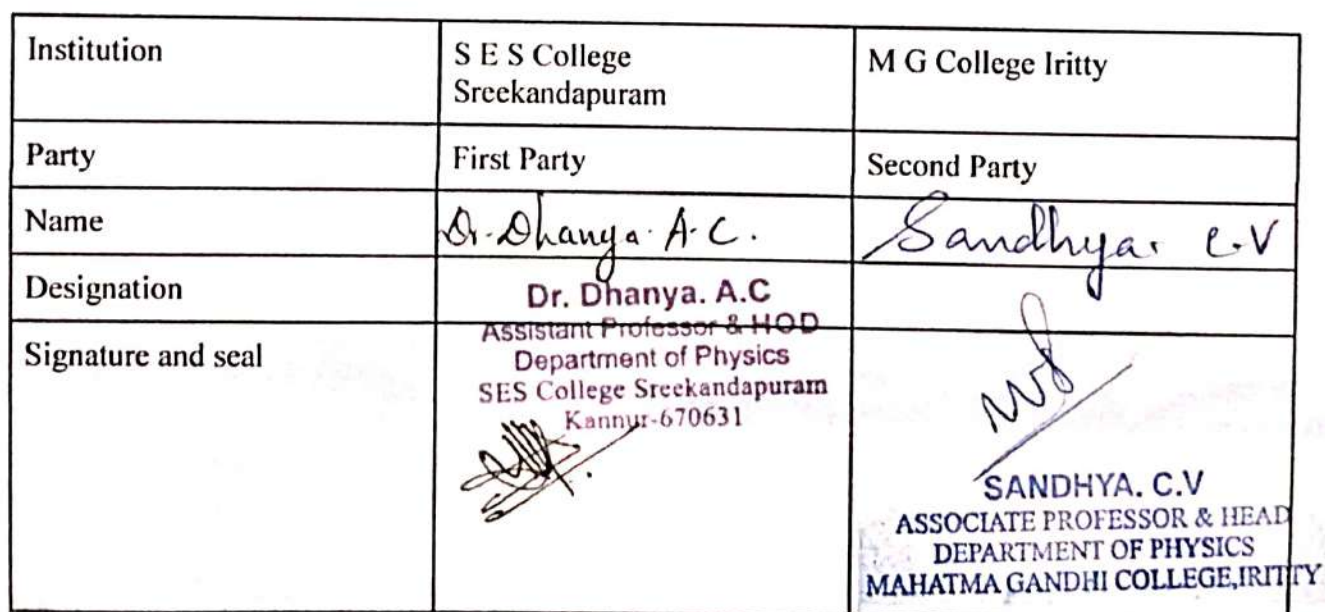 Institution
S E S College
Sreekandapuram
M G College Iritty
Party
First Party
Second Party
Name
Dr. Dhanya A.C.
Sandhya. C.V
Designation
Dr. Dhanya. A.C
Assistant Professor & HOD
Signature and seal
Department of Physics
SES College Sreekandapuram
Kannur-670631
SANDHYA. C.V
ASSOCIATE PROFESSOR & HEAD
DEPARTMENT OF PHYSICS
MAHATMA GANDHI COLLEGE,IRITTY